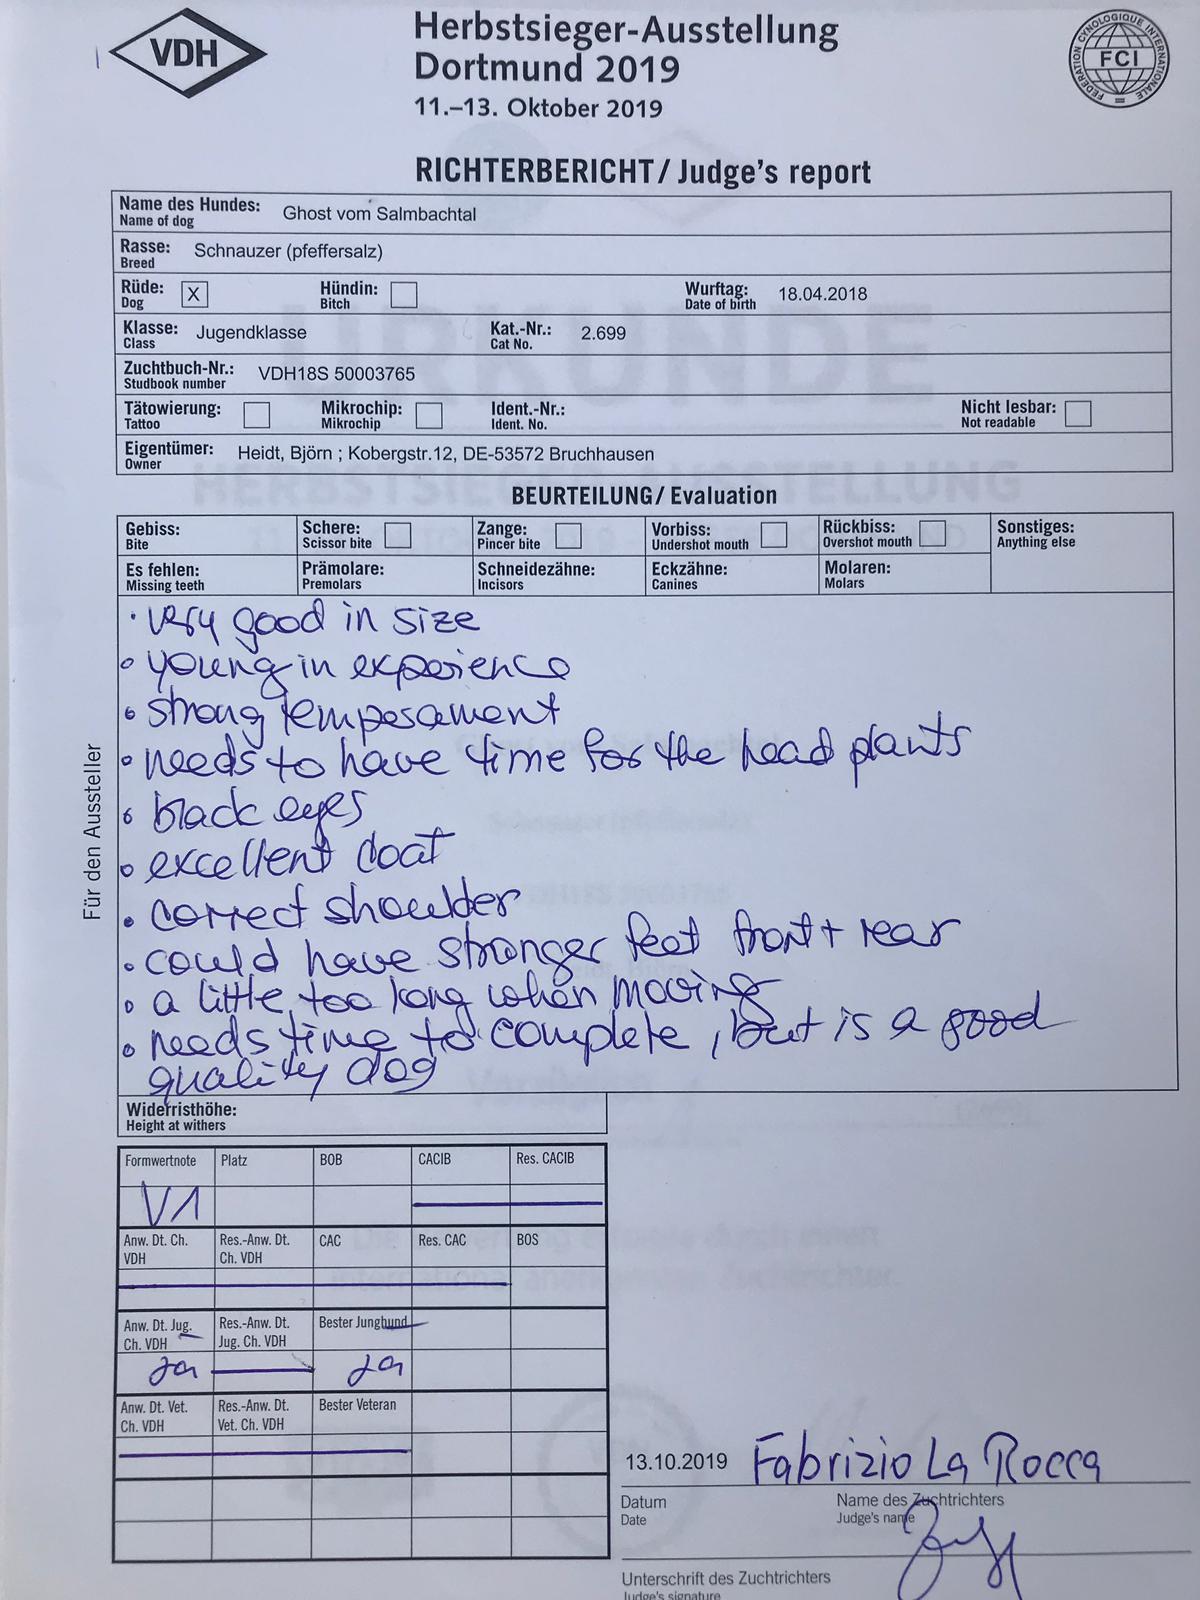 VDH
Herbstsieger-Ausstellung
Dortmund 2019
11.–13. Oktober 2019
FEDERATION CYNOLOGIQUE INTERNATIONALE
FCI
RICHTERBERICHT/ Judge's report
Name des Hundes: Ghost vom Salmbachtal
Name of dog
Rasse: Schnauzer (pfeffersalz)
Breed
Rüde: X Hündin: Wurftag: 18.04.2018
Dog Bitch Date of birth
Klasse: Jugendklasse Kat.-Nr.: 2.699
Class Cat No.
Zuchtbuch-Nr.: VDH18S 50003765
Studbook number
Tätowierung: Mikrochip: Ident.-Nr.: Nicht lesbar:
Tattoo Mikrochip Ident. No. Not readable
Eigentümer: Heidt, Björn ; Kobergstr.12, DE-53572 Bruchhausen
Owner
BEURTEILUNG/ Evaluation
Gebiss: Schere: Zange: Vorbiss: Rückbiss: Sonstiges:
Bite Scissor bite Pincer bite Undershot mouth Overshot mouth Anything else
Es fehlen: Prämolare: Schneidezähne: Eckzähne: Molaren:
Missing teeth Premolars Incisors Canines Molars
Für den Aussteller
• very good in size
• young in experience
• strong temperament
• needs to have time for the head plants
• black eyes
• excellent coat
• correct shoulder
• could have stronger feet front + rear
• a little too long when moving
• needs time to complete, but is a good
quality dog
Widerristhöhe:
Height at withers
Formwertnote Platz BOB CACIB Res. CACIB
V1
Anw. Dt. Ch. Res.-Anw. Dt. CAC Res. CAC BOS
VDH Ch. VDH
Anw. Dt. Jug. Res.-Anw. Dt. Bester Junghund
Ch. VDH Jug. Ch. VDH
Ja Ja
Anw. Dt. Vet. Res.-Anw. Dt. Bester Veteran
Ch. VDH Vet. Ch. VDH
13.10.2019 Fabrizio La Rocca
Datum Name des Zuchtrichters
Date Judge's name
Unterschrift des Zuchtrichters
Judge's signature